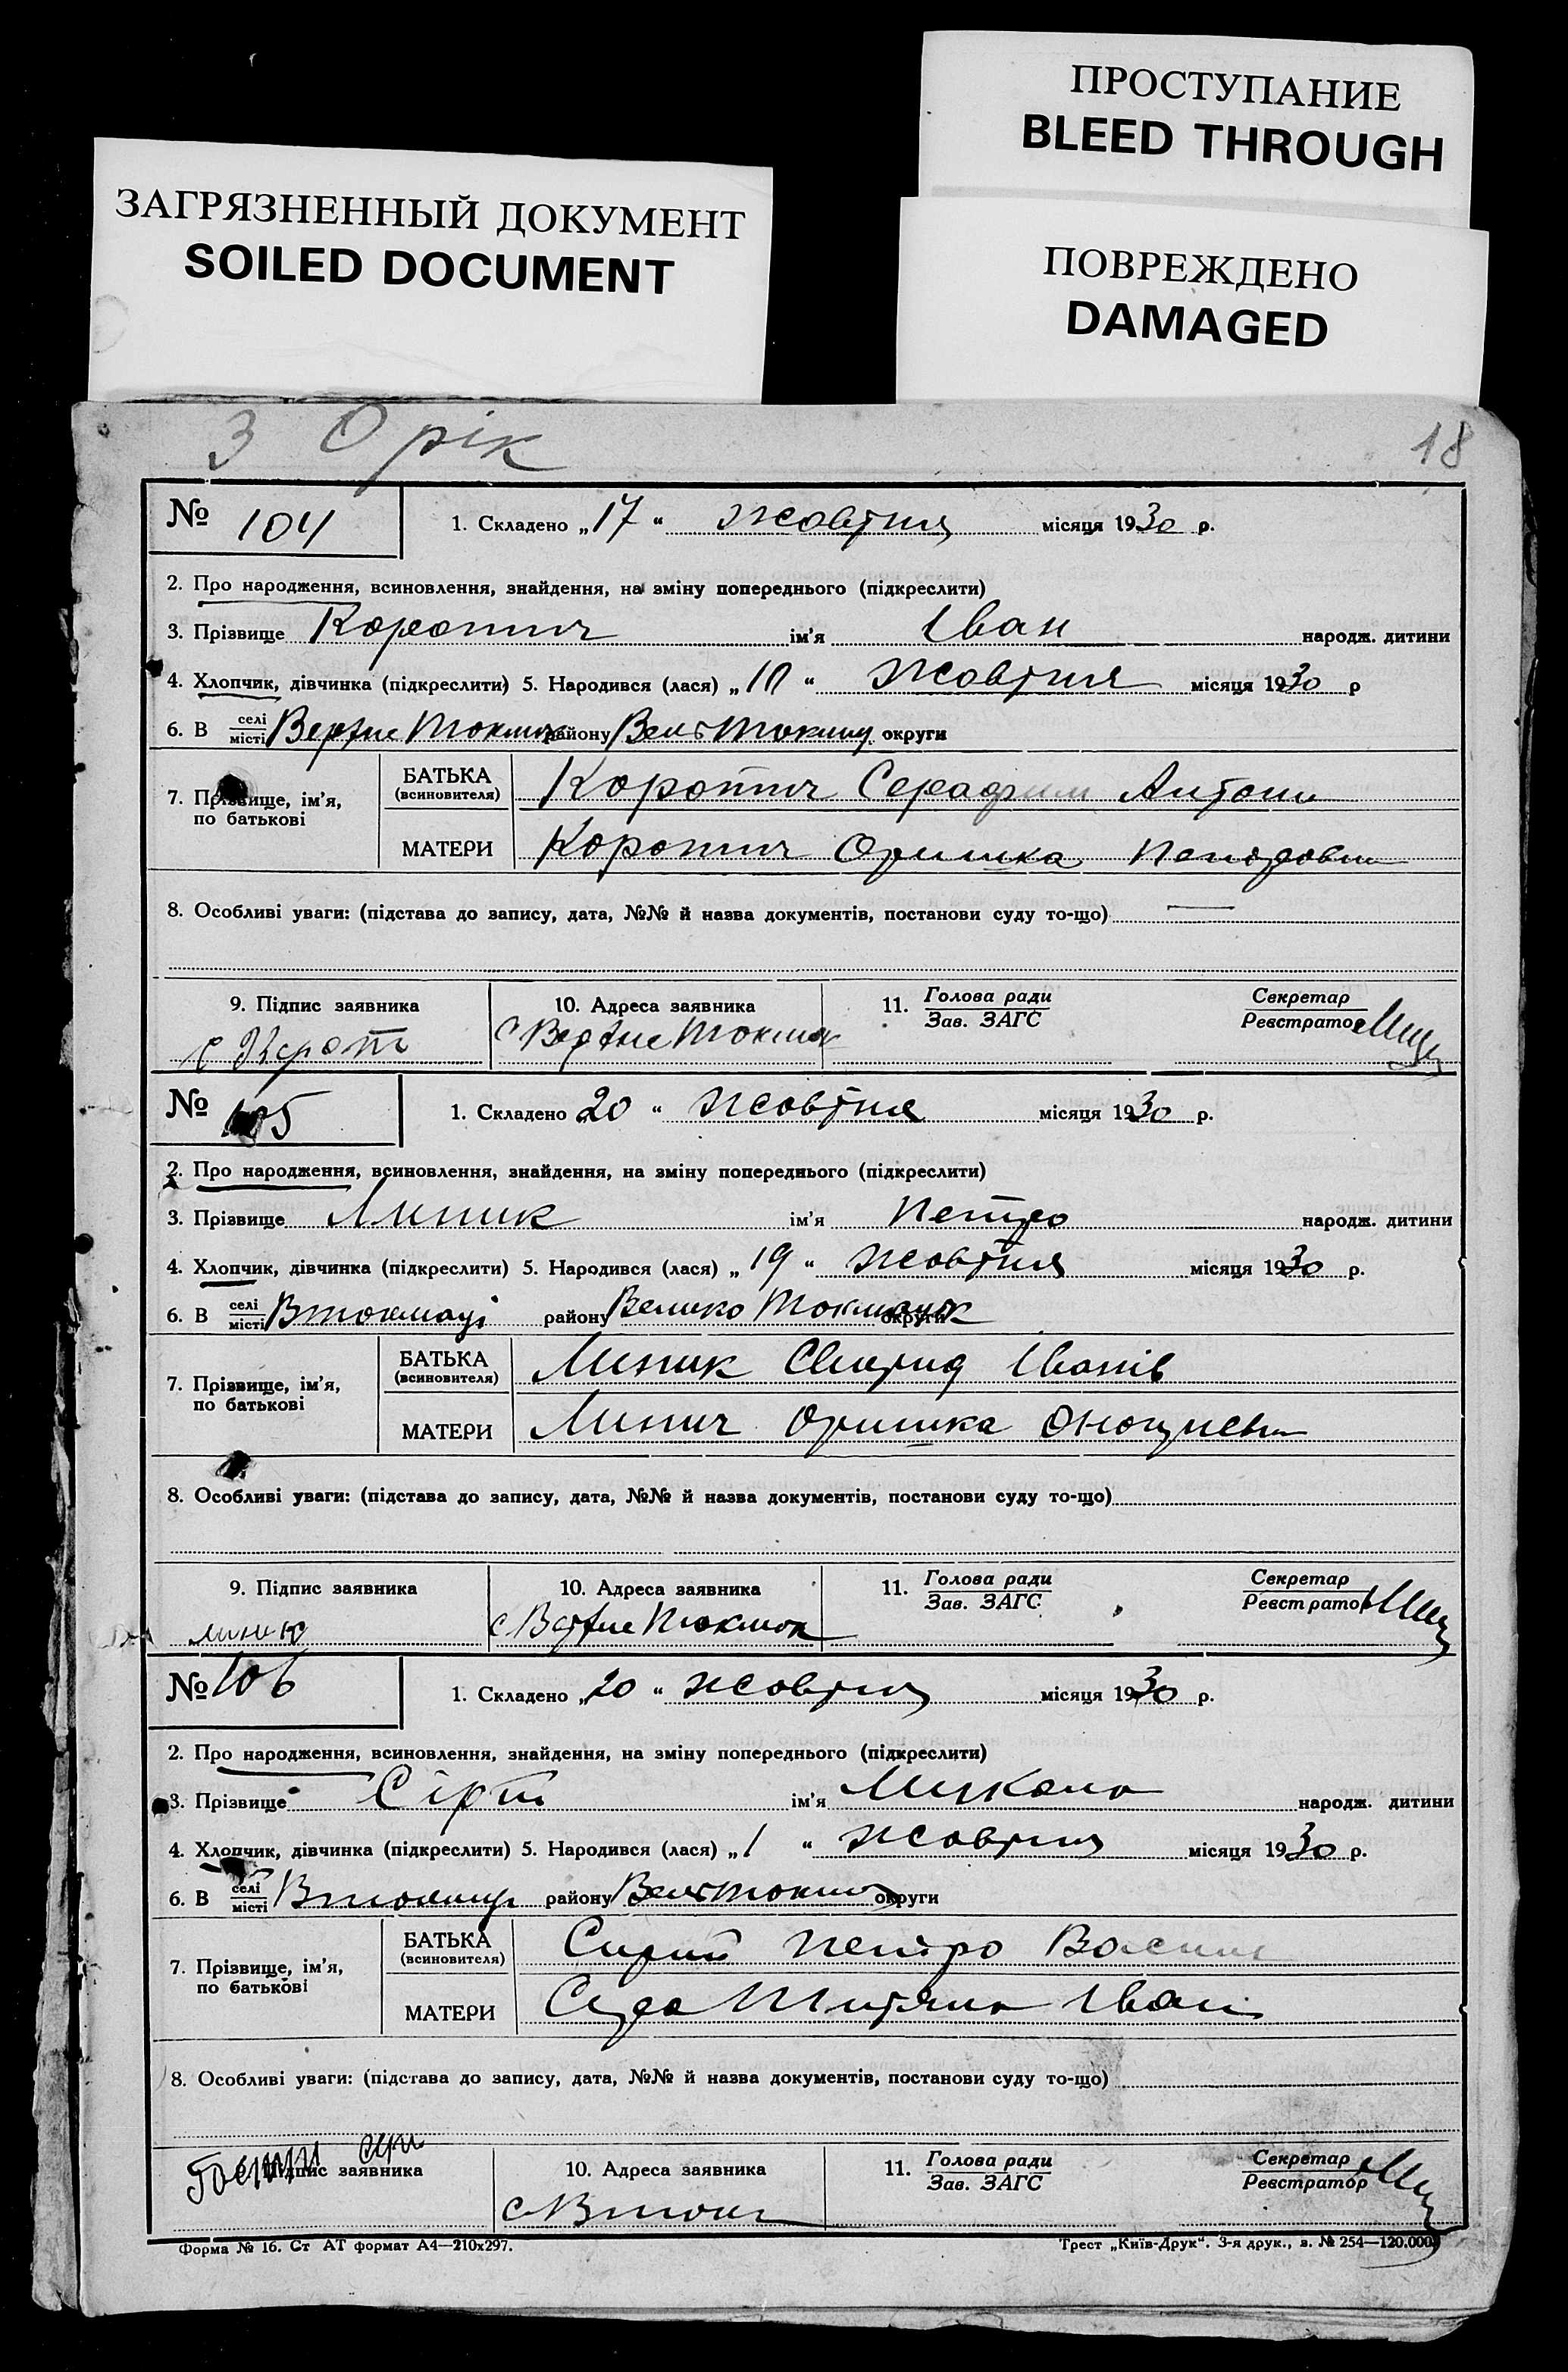 ПРОСТУПАНИЕ
BLEED THROUGH
ЗАГРЯЗНЕННЫЙ ДОКУМЕНТ
SOILED DOCUMENT
ПОВРЕЖДЕНО
DAMAGED
30 рік
18
№ 104 1. Складено „17“ жовтня місяця 1930 р.
2. Про народження, всиновлення, знайдення, на зміну попереднього (підкреслити)
3. Прізвище Коропич ім'я Іван народж. дитини
4. Хлопчик, дівчинка (підкреслити) 5. Народився (лася) „10“ жовтня місяця 1930 р
6. В селі місті Верхне Токмак району ВелТокмац округи
7. Прізвище, ім'я, по батькові
БАТЬКА (всиновителя) Коропич Серафим Антони
МАТЕРИ Коропич Оришка
8. Особливі уваги: (підстава до запису, дата, №№ й назва документів, постанови суду то-що) —
9. Підпис заявника 10. Адреса заявника 11. Голова ради Зав. ЗАГС Секретар Реєстратор
с Верхне Токмак
№ 105 1. Складено „20“ жовтня місяця 1930 р.
2. Про народження, всиновлення, знайдення, на зміну попереднього (підкреслити)
3. Прізвище Липик ім'я Петро народж. дитини
4. Хлопчик, дівчинка (підкреслити) 5. Народився (лася) „19“ жовтня місяця 1930 р.
6. В селі місті Втокмаці району Велико Токмацьк округи
7. Прізвище, ім'я, по батькові
БАТЬКА (всиновителя) Липик Свирид Іванів
МАТЕРИ Липич Оришка
8. Особливі уваги: (підстава до запису, дата, №№ й назва документів, постанови суду то-що)
9. Підпис заявника 10. Адреса заявника 11. Голова ради Зав. ЗАГС Секретар Реєстратор
с Верхне Токмак
№ 106 1. Складено „20“ жовтня місяця 1930 р.
2. Про народження, всиновлення, знайдення, на зміну попереднього (підкреслити)
3. Прізвище ім'я Микола народж. дитини
4. Хлопчик, дівчинка (підкреслити) 5. Народився (лася) „1“ жовтня місяця 1930 р.
6. В селі місті Втокмаці району ВелТокмац округи
7. Прізвище, ім'я, по батькові
БАТЬКА (всиновителя) Сирий Петро Васили
МАТЕРИ Сира Титяна Іван
8. Особливі уваги: (підстава до запису, дата, №№ й назва документів, постанови суду то-що)
Підпис заявника 10. Адреса заявника 11. Голова ради Зав. ЗАГС Секретар Реєстратор
с Вток
Форма № 16. Ст АТ формат А4—210х297. Трест „Київ-Друк“. 3-я друк., з. № 254—120.000